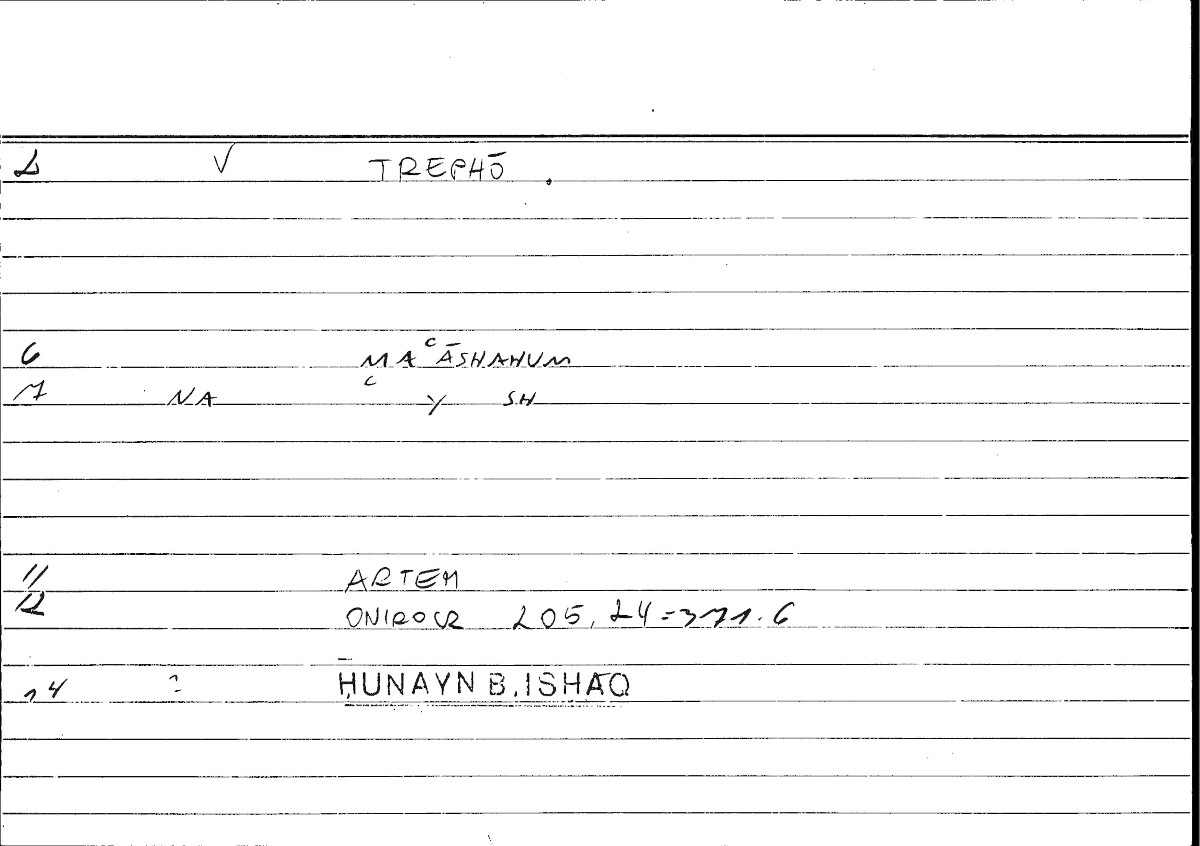 2 V TREPHŌ .
6 MAʿĀSHAHUM
7 NA ʿ Y SH
11 ARTEM
12 ONIROCR 205, 24 = 371.6
14 ḤUNAYN B. ISHĀQ